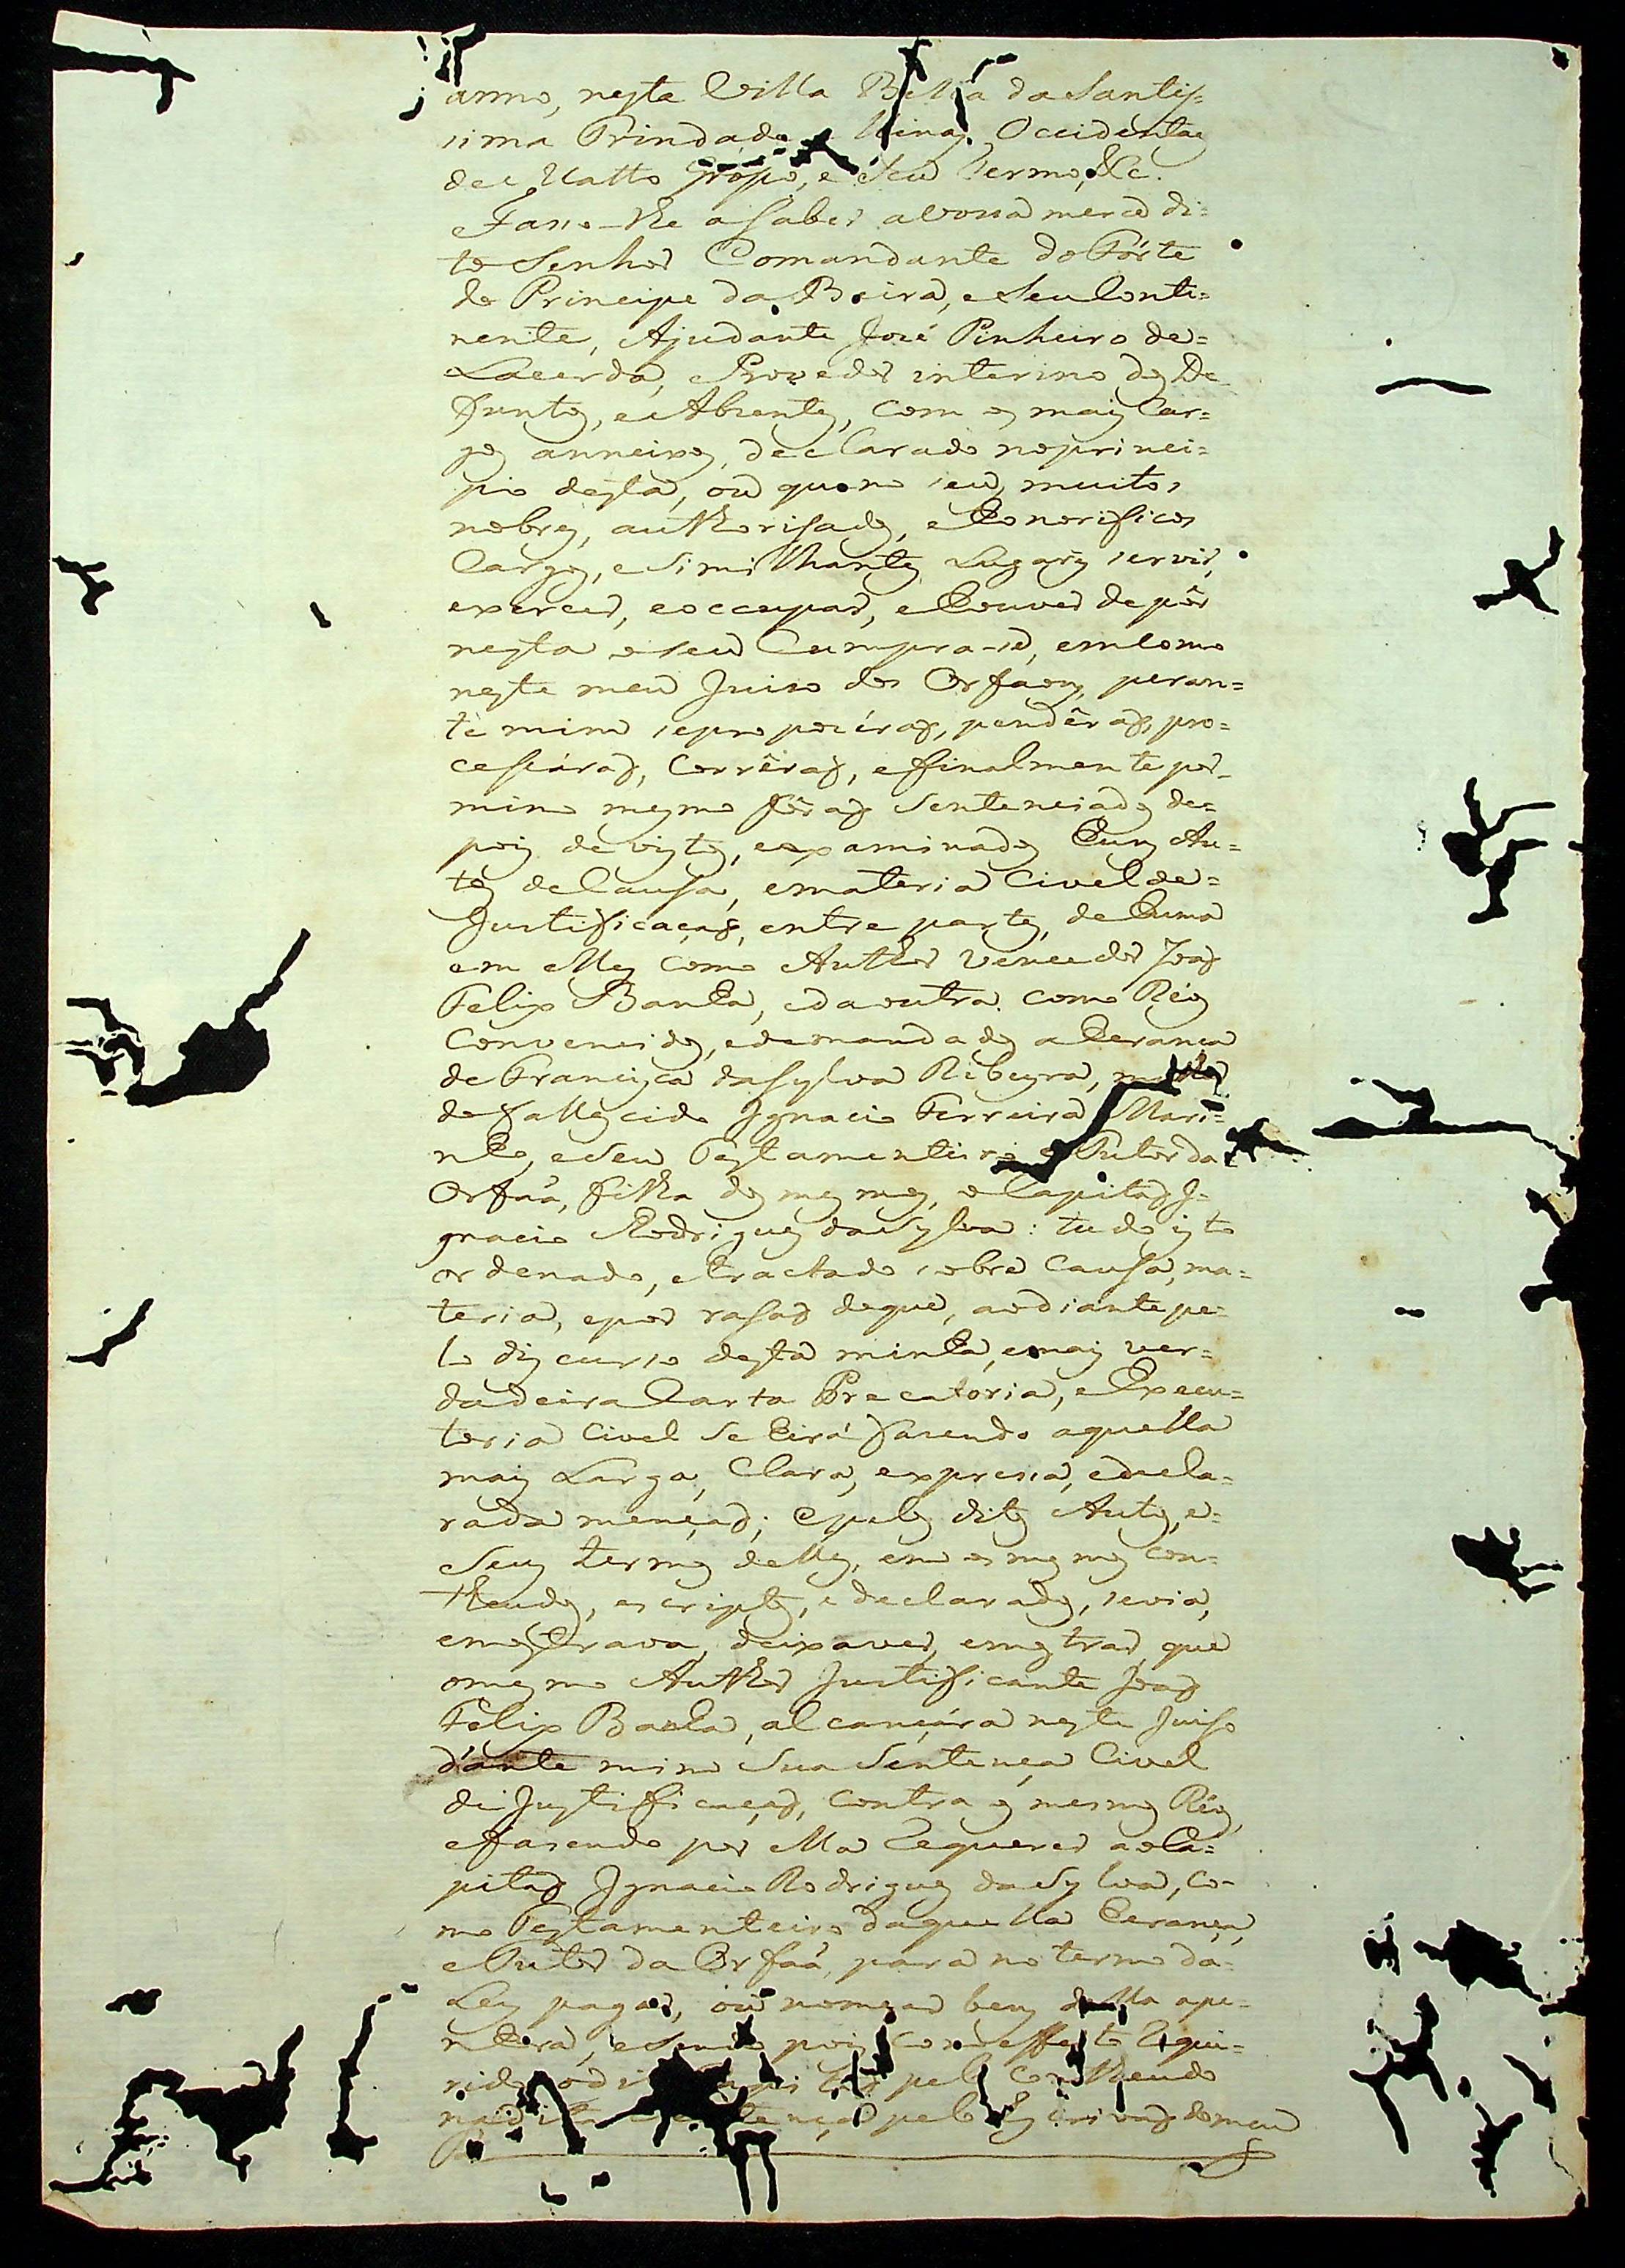 anno, nesta Villa Bella da Santis-
sima Trindade Minas Occidentaes
de Matto Grosso, e Seu Termo, &c.
Faço-lhe a saber a vossa mercê di-
to Senhor Comandante do Forte
do Principe da Beira, e Seu Conti-
nente, Ajudante José Pinheiro de=
Lacerda, Provedor interino dos De-
funtos, e Absentes, com os mais Car=
gos anneixos, declarado no princi=
pio desta, ou quem seus muitos
nobres, authorisados, e honorificos
Cargos, e Similhantes Lugares servir,
exercer, e occupar, e houver de pôr
nesta o seu Cumpra-se, em como
neste meu Juiso dos Orfaons, peran=
te mim se propocéraõ, pendêraõ, pro=
cessáraõ, Corrêraõ, e ffinalmente por
mim mesmo fôraõ Sentenciados de=
pois de vistos, e examinados huns Au=
tos de Causa, e materia Civel de=
Justificaçaõ, entre partes, de huma
em elles como Author Vencedor Joaõ
Felix Banha, e da outra como Réos
Convencidos, e demandados a herança
de Francisca da Sylva Ribeyra,
do fallescido Ignacio Ferreira Mari=
nho, e Seu Testamenteiro e Tutor da
Orfaã, filha dos mesmos, o Capitaõ I-
gnacio Rodrigues da Sylva: tudo isto
ordenado, e tractado sobre Causa, ma=
teria, e por rasaõ de que, ao diante pe-
lo discurso desta minha, e mais ver=
dadeira Carta Precatoria, e Execu=
toria Civel se hirá fasendo aquella
mais Larga, Clara, expressa, e decla=
rada mençaõ; e pelos ditos Autos, e=
Seus termos delles, em os mesmos con=
theudos, escriptos, e declarados, se via,
e mostrava, deixa ver, e mostrar, que
o mesmo Author Justificante Joaõ
Felix Banha, alcançára neste Juiso
d'ante mim Sua Sentença Civel
de Justifficaçaõ, contra os mesmos Réos,
e ffasendo por ella requerer ao Ca=
pitaõ Ignacio Rodrigues da Sylva, co-
mo Testamenteiro daquella herança,
e Tutor da Orfaã, para no termo da=
Ley pagar, ou nomear bens della a pe-
nhora, e sendo pois com effeito requi=
rido o dito Capitaõ pelo Contheudo
na dita Sentença pelo Escrivaõ do meu